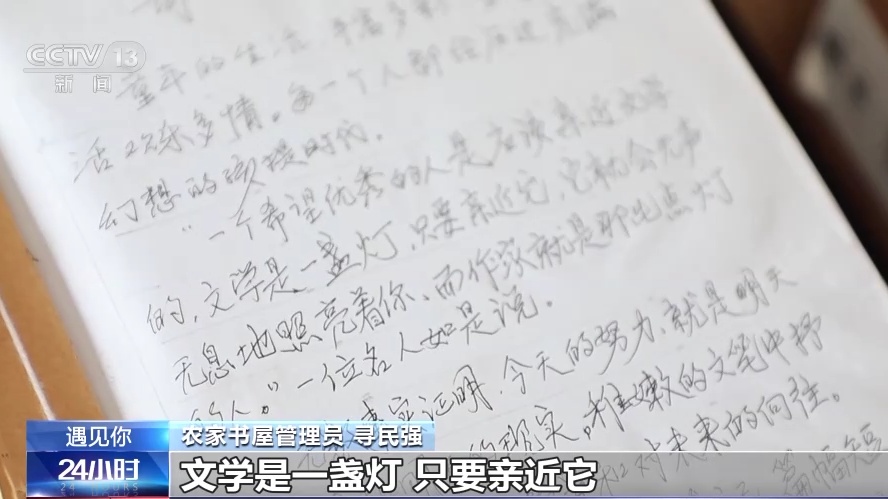 CCTV 13
新闻
童年的生活
活欢乐多情。每一个人都经历过充满
幻想的孩提时代。
“一个希望优秀的人是应该亲近文学
的，文学是一盏灯，只要亲近它，它就会无声
无息地照亮着你、而作家就是那些点灯
的人。”一位名人如是说。
证明，今天的努力、就是明天
的现实。稚嫩的文笔中抒
和对未来的向往。
篇幅短
遇见你
24小时
农家书屋管理员 寻民强
文学是一盏灯 只要亲近它